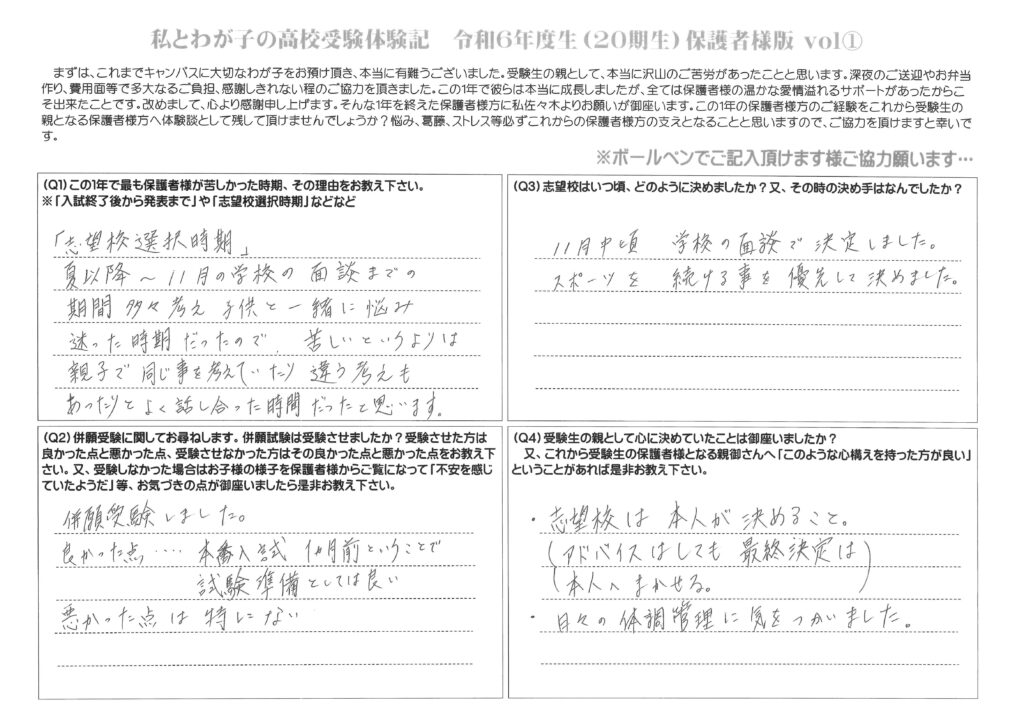 私とわが子の高校受験体験記　令和6年度生（20期生）保護者様版 vol①
まずは、これまでキャンパスに大切なわが子をお預け頂き、本当に有難うございました。受験生の親として、本当に沢山のご苦労があったことと思います。深夜のご送迎やお弁当
作り、費用面等で多大なるご負担、感謝しきれない程のご協力を頂きました。この1年で彼らは本当に成長しましたが、全ては保護者様の温かな愛情溢れるサポートがあったからこ
そ出来たことです。改めまして、心より感謝申し上げます。そんな1年を終えた保護者様方に私佐々木よりお願いが御座います。この1年の保護者様方のご経験をこれから受験生の
親となる保護者様方へ体験談として残して頂けませんでしょうか？悩み、葛藤、ストレス等必ずこれからの保護者様方の支えとなることと思いますので、ご協力を頂けますと幸いで
す。
※ボールペンでご記入頂けます様ご協力願います…
（Q1）この1年で最も保護者様が苦しかった時期、その理由をお教え下さい。
※「入試終了後から発表まで」や「志望校選択時期」などなど
「志望校選択時期」
夏以降～11月の学校の面談までの
期間 多々考え 子供と一緒に悩み
迷った時期だったので、苦しいというよりは
親子で同じ事を考えていたり 違う考えも
あったりとよく話し合った時間だったと思います。
（Q2）併願受験に関してお尋ねします。併願試験は受験させましたか？受験させた方は
良かった点と悪かった点、受験させなかった方はその良かった点と悪かった点をお教え下
さい。又、受験しなかった場合はお子様の様子を保護者様からご覧になって「不安を感じ
ていたようだ」等、お気づきの点が御座いましたら是非お教え下さい。
併願受験しました。
良かった点‥‥ 本番入試 1ヶ月前ということで
試験準備としては良い
悪かった点は 特にない
（Q3）志望校はいつ頃、どのように決めましたか？又、その時の決め手はなんでしたか？
11月中頃　学校の面談で決定しました。
スポーツを　続ける事を優先して決めました。
（Q4）受験生の親として心に決めていたことは御座いましたか？
又、これから受験生の保護者様となる親御さんへ「このような心構えを持った方が良い」
ということがあれば是非お教え下さい。
・志望校は 本人が決めること。
（アドバイスはしても 最終決定は
本人へまかせる。）
・日々の体調管理に気をつかいました。